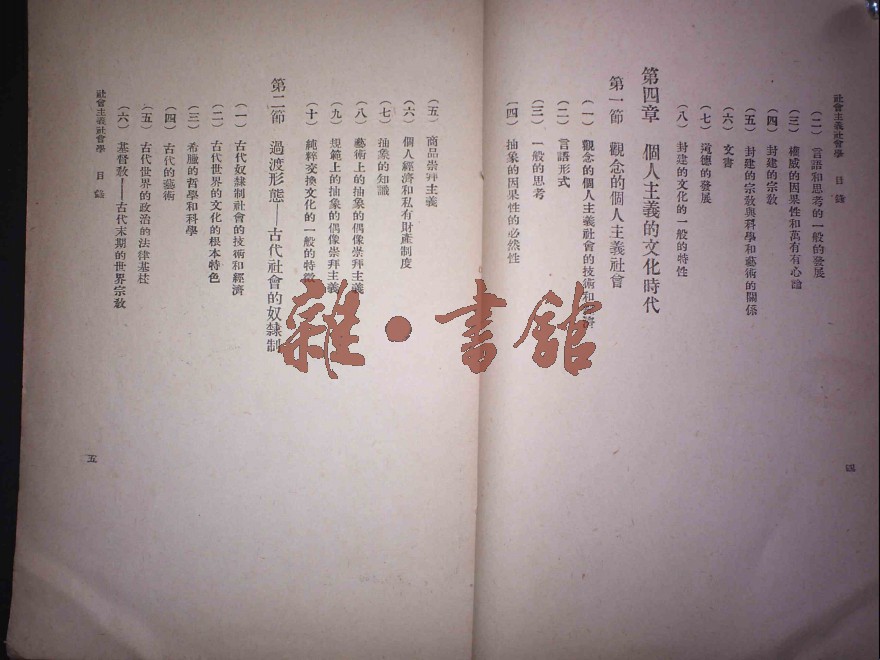 社會主義社會學 目錄
(二) 言語和思考的一般的發展
(三) 權威的因果性和萬有有心論
(四) 封建的宗敎
(五) 封建的宗敎與科學和藝術的關係
(六) 文書
(七) 道德的發展
(八) 封建的文化的一般的特性
第四章 個人主義的文化時代
第一節 觀念的個人主義社會
(一) 觀念的個人主義社會的技術和經濟
(二) 言語形式
(三) 一般的思考
(四) 抽象的因果性的必然性
四
(五) 商品崇拜主義
(六) 個人經濟和私有財產制度
(七) 抽象的知識
(八) 藝術上的抽象的偶像崇拜主義
(九) 規範上的抽象的偶像崇拜主義
(十) 純粹交換文化的一般的特徵
第二節 過渡形態——古代社會的奴隸制
(一) 古代奴隸制社會的技術和經濟
(二) 古代世界的文化的根本特色
(三) 希臘的哲學和科學
(四) 古代的藝術
(五) 古代世界的政治的法律基柱
(六) 基督敎——古代末期的世界宗敎
社會主義社會學 目錄
五
雜·書館